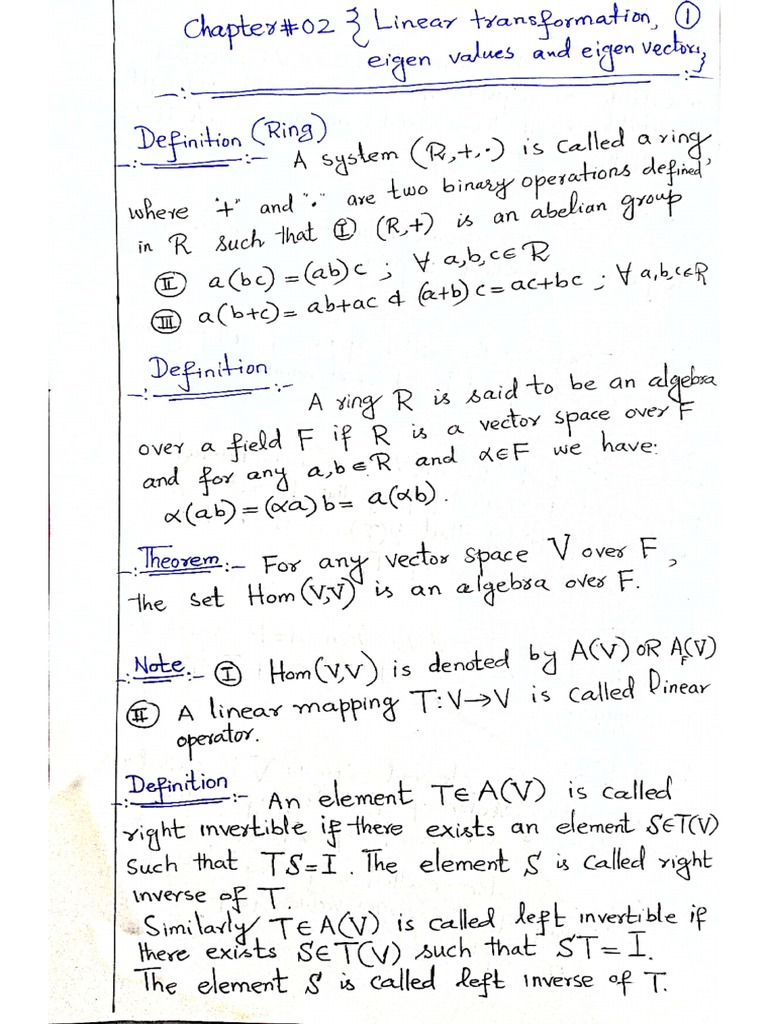 Chapter#02 { Linear transformation, ①
eigen values and eigen vectors }
Definition (Ring)
:- A system (R,+,·) is called a ring,
where "+" and "·" are two binary operations defined
in R such that Ⓘ (R,+) is an abelian group
Ⓘⓘ a(bc) = (ab)c ; ∀ a,b,c∈R
Ⓘⓘⓘ a(b+c) = ab+ac & (a+b)c = ac+bc ; ∀ a,b,c∈R
Definition
:- A ring R is said to be an algebra
over a field F if R is a vector space over F
and for any a,b∈R and α∈F we have:
α(ab) = (αa)b = a(αb).
Theorem:- For any vector space V over F,
the set Hom(V,V) is an algebra over F.
Note:- Ⓘ Hom(V,V) is denoted by A(V) OR A_F(V)
Ⓘⓘ A linear mapping T:V→V is called linear
operator.
Definition:- An element T∈A(V) is called
right invertible if there exists an element S∈T(V)
such that TS=I. The element S is called right
inverse of T.
Similarly T∈A(V) is called left invertible if
there exists S∈T(V) such that ST=I.
The element S is called left inverse of T.